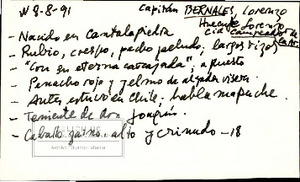 W 8-8-91
Capitán BERNALES, Lorenzo
- Nacido en Cantalapiedra
- Rubio, crespo, pecho peludo, largos rizos
- "Con su eterna", apuesto
- Penacho rojo y yelmo de alzada visera
- Antes estuvo en Chile; habla mapuche.
- Teniente de don Joaquín.
- Caballo zaino, alto y crinudo - 18